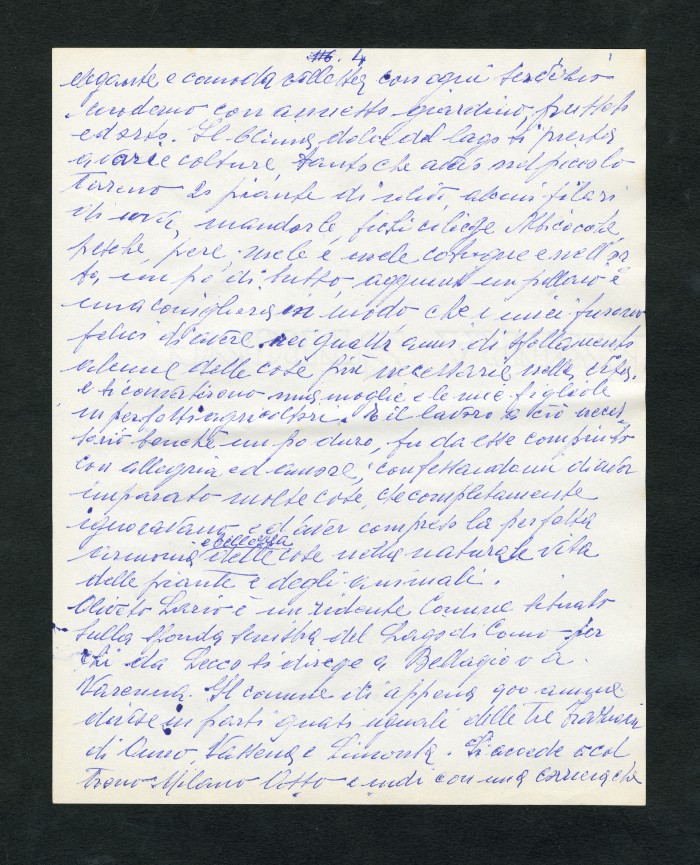 4
elegante e comoda villetta, con ogni servizio
moderno con annesso giardino, frutteto
ed orto. Il clima dolce del lago si presta
a varie colture, tanto che nel piccolo
terreno 20 piante di ulivi alcuni filari
di uva, mandorle, fichi ciliege Albicocche,
pesche, pere, mele e mele cotogne e nell'or
to, un po di tutto, aggiunti un pollaio e
una conigliera in modo che i miei furono
felici di avere nei quattr'anni di sfollamento
alcune delle cose più necessarie nella vita,
e si convertirono mia moglie e le mie figliole
in perfetti agricoltori. E il lavoro a ciò neces
sario benchè un po duro, fu da esse compiuto
con allegria ed amore, confessandomi di aver
imparato molte cose, che completamente
ignoravano, e d'aver compreso la perfetta
armonia e bellezza delle cose nella naturale vita
delle piante e degli animali.
Oliveto Lario è un ridente Comune situato
sulla sponda sinistra del Lago di Como per
chi da Lecco si direge a Bellagio o a
Varenna. Il comune di appena 900 anime
divise in parti quasi uguali delle tre frazioni
di Onno, Vassena e Limonta. Si accede col
Treno Milano Asso e indi con una corriera che